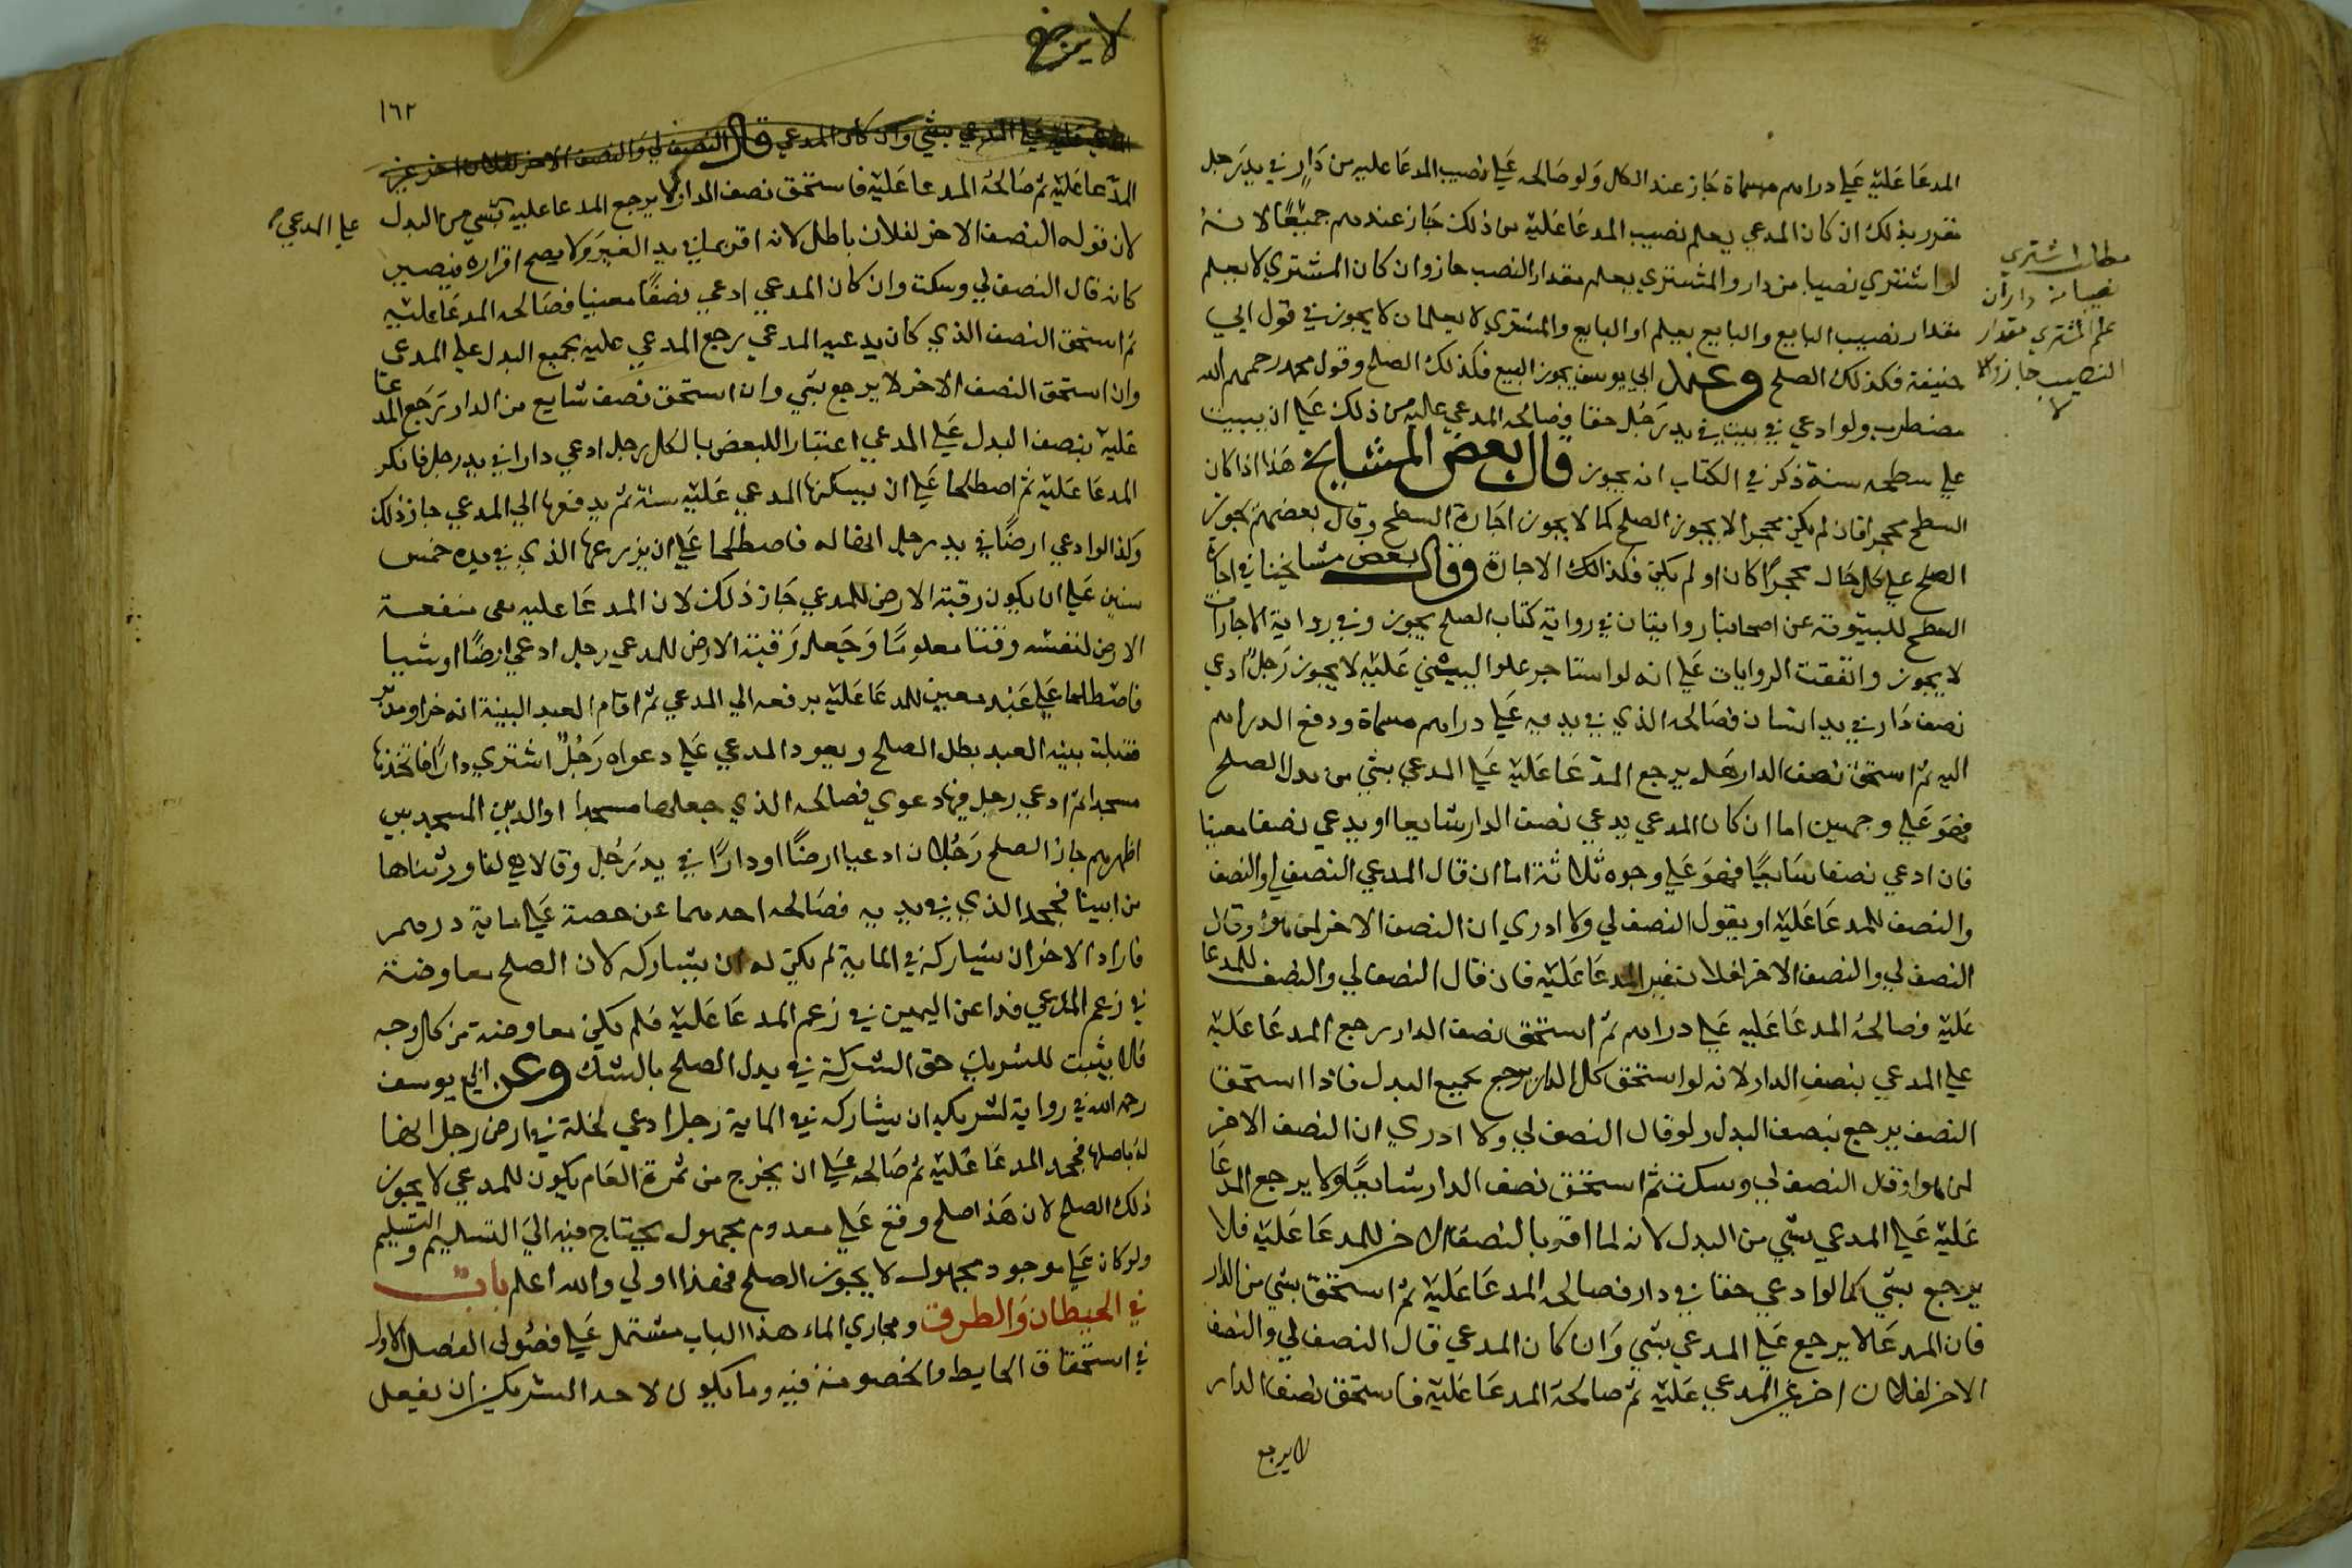 المدعا عليه علي دراهم مسماة جاز عند الكل ولو صالحه علي نصيب المدعا عليه من دار في يد رجل
مقر بذلك ان كان المدعي يعلم نصيب المدعا عليه من ذلك جاز عندهم جميعا لانه
لو اشتري نصيبا من دار والمشتري يعلم مقدار النصيب جاز وان كان المشتري لا يعلم
مقدار نصيب البايع والبايع يعلم او البايع والمشتري لا يعلمان لا يجوز في قول ابي
حنيفة فكذلك الصلح وعند ابي يوسف يجوز البيع فكذلك الصلح وقول محمد رحمهم الله
مضطرب ولو ادعي في بيت في يد رجل حقا فصالحه المدعي عليه من ذلك علي ان يبيت
علي سطحه سنة ذكر في الكتاب انه يجوز قال بعض المشايخ هذا اذا كان
السطح محجرا فان لم يكن محجرا لا يجوز الصلح كما لا يجوز اجارة السطح وقال بعضهم يجوز
الصلح علي كل حال محجرا كان او لم يكن فكذلك الاجارة وقال بعض مشايخنا في اجارة
السطح للبيتوتة عن اصحابنا روايتان في رواية كتاب الصلح يجوز وفي رواية الاجارات
لا يجوز واتفقت الروايات علي انه لو استاجر علوا ليبني عليه لا يجوز رجل ادعي
نصف دار في يد انسان فصالحه الذي في يديه علي دراهم مسماة ودفع الدراهم
اليه ثم استحق نصف الدار هل يرجع المدعا عليه علي المدعي بشي من بدل الصلح
فهو علي وجهين اما ان كان المدعي يدعي نصف الدار شايعا او يدعي نصفا معينا
فان ادعي نصفا شايعا فهو علي وجوه ثلاثة اما ان قال المدعي النصف لي والنصف
والنصف للمدعا عليه او يقول النصف لي ولا ادري ان النصف الاخر لمن هو او قال
النصف لي والنصف الاخر لفلان غير المدعا عليه فان قال النصف لي والنصف للمدعا
عليه فصالحه المدعا عليه علي دراهم ثم استحق نصف الدار رجع المدعا عليه
علي المدعي بنصف الدار لانه لو استحق كل الدار يرجع بجميع البدل فاذا استحق
النصف يرجع بنصف البدل ولو قال النصف لي ولا ادري ان النصف الاخر
لمن هو او قال النصف لي وسكت ثم استحق نصف الدار شايعا لا يرجع المدعا
عليه علي المدعي بشي من البدل لانه لما اقر بالنصف الاخر للمدعا عليه فلا
يرجع بشي كما لو ادعي حقا في دار فصالحه المدعا عليه ثم استحق بشي من الدار
فان المدعا لا يرجع علي المدعي بشي وان كان المدعي قال النصف لي والنصف
الاخر لفلان اخر غير المدعي عليه ثم صالحه المدعا عليه فاستحق نصف الدار
لا يرجع
مطلب اشتري
نصيبا من دار ان
علم المشتري مقدار
النصيب جاز والا
لا
لا يرجع
١٦٢
علي المدعي بشي وان كان المدعي قال النصف لي والنصف الاخر لفلان اخر غير
المدعا عليه ثم صالحه المدعا عليه فاستحق نصف الدار لا يرجع المدعا عليه بشي من البدل
علي المدعي
لان قوله النصف الاخر لفلان باطل لانه اقر بما في يد الغير ولا يصح اقراره فيصير
كانه قال النصف لي وسكت وان كان المدعي ادعي نصفا معينا فصالحه المدعا عليه
ثم استحق النصف الذي كان يدعيه المدعي يرجع المدعي عليه بجميع البدل علي المدعي
وان استحق النصف الاخر لا يرجع بشي وان استحق نصف شايع من الدار يرجع المدعا
عليه بنصف البدل علي المدعي اعتبارا للبعض بالكل رجل ادعي دارا في يد رجل فانكر
المدعا عليه ثم اصطلحا علي ان يسكنها المدعي عليه سنة ثم يدفعها الي المدعي جاز ذلك
وكذا لو ادعي ارضا في يد رجل انها له فاصطلحا علي ان يزرعها الذي في يده خمس
سنين علي ان يكون رقبة الارض للمدعي جاز ذلك لان المدعا عليه بقي منفعة
الارض لنفسه وقتا معلوما وجعل رقبة الارض للمدعي رجل ادعي ارضا او شيا
فاصطلحا علي عبد معين للمدعا عليه يرفعه الي المدعي ثم اقام العبد البينة انه حر او مدبر
فقبلت بينه العبد بطل الصلح ويعود المدعي علي دعواه رجل اشتري دارا فاتخذها
مسجدا ثم ادعي رجل فيها دعوي فصالحه الذي جعلها مسجدا او الذين المسجد بين
اظهرهم جاز الصلح رجلان ادعيا ارضا او دارا في يد رجل وقالا هي لنا ورثناها
من ابينا فجحد الذي في يديه فصالحه احدهما عن حصة علي ماية درهم
فاراد الاخر ان يشاركه في الماية لم يكن له ان يشاركه لان الصلح معاوضة
في زعم المدعي فدا عن اليمين في زعم المدعا عليه فلم يكن معاوضة من كل وجه
فلا يثبت للشريك حق الشركة في بدل الصلح بالشك وعن ابي يوسف
رحمه الله في رواية لشريكه ان يشاركه في الماية رجل ادعي نخلة في ارض رجل انها
له باصلها فجحد المدعا عليه ثم صالحه علي ان يخرج من ثمرة العام يكون للمدعي لا يجوز
ذلك الصلح لان هذا صلح وقع علي معدوم مجهول يحتاج فيه الي التسليم والتسليم
ولو كان علي موجود مجهول لا يجوز الصلح فهذا اولي والله اعلم باب
في الحيطان والطرق ومجاري الماء هذا الباب مشتمل علي فصول الفصل الاول
في استحقاق الحايط والخصومة فيه وما يكون لاحد الشريكين ان يفعل